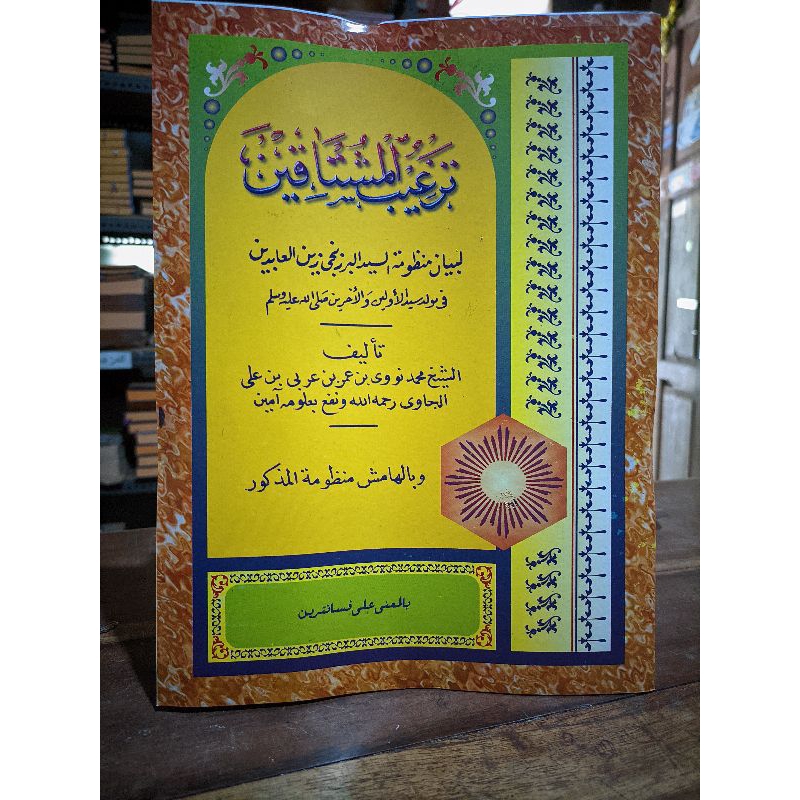 ترغيب المشتاقين
لبيان منظومة السيد البرزنجي زين العابدين
في مولد سيد الأولين والأخرين صلى الله عليه وسلم
تأليف
الشيخ محمد نووى بن عمر بن عربي بن على
الجاوى رحمه الله ونفع بعلومه آمين
وبالهامش منظومة المذكور
بالمعنى على فسانترين